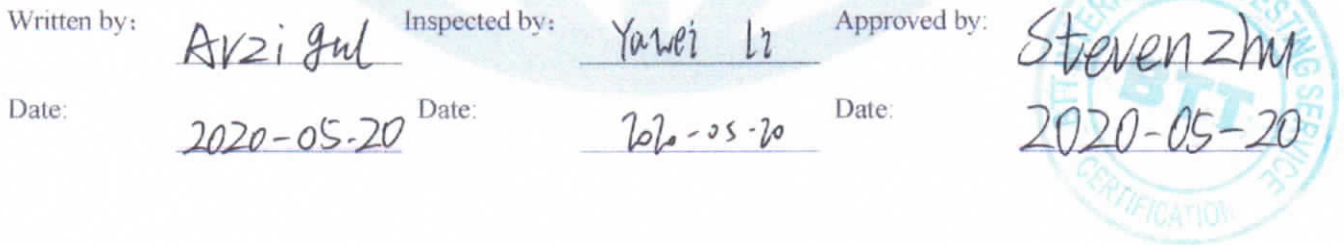 Written by: Arzigul Inspected by: Yawei li Approved by: Steven zhu
Date: 2020-05-20 Date: 2020-05-20 Date: 2020-05-20
BTT
TESTING SERVICE
CERTIFICATION